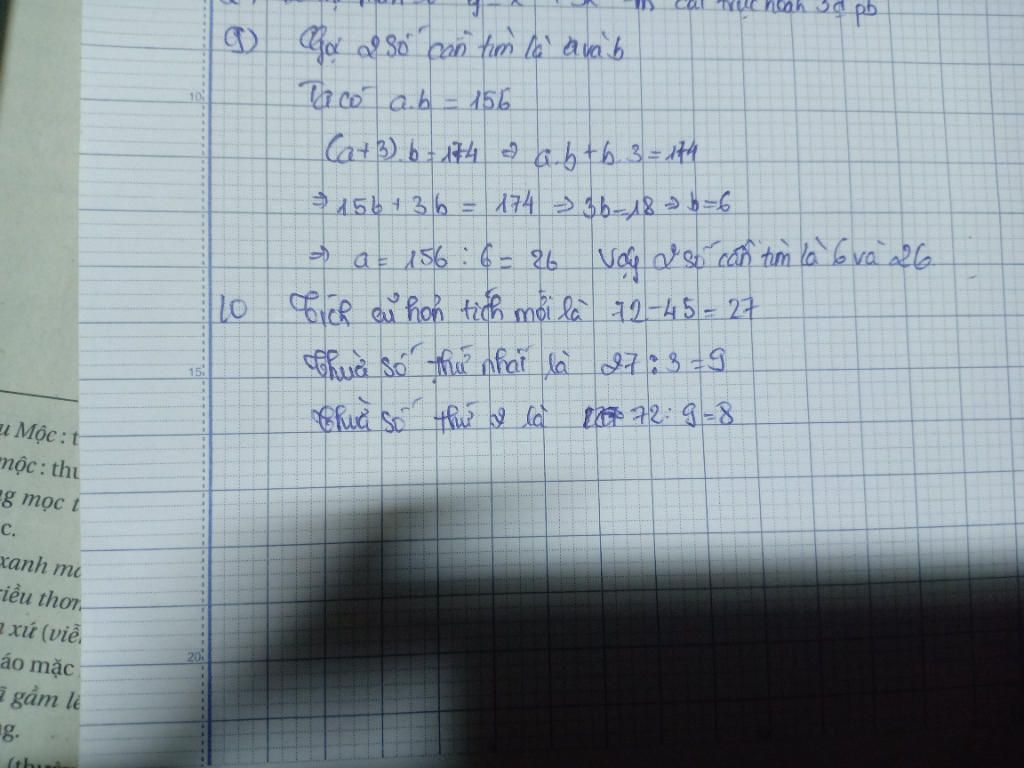 cắt trục hoành 3đ pb
9) Gọi 2 số cần tìm là a và b
10
Ta có a.b = 156
(a+3).b = 174 => a.b + b.3 = 174
=> 156 + 3b = 174 => 3b = 18 => b = 6
=> a = 156 : 6 = 26 Vậy 2 số cần tìm là 6 và 26
10 Tích cũ hơn tích mới là 72 - 45 = 27
15
Thừa số thứ nhất là 27 : 3 = 9
Thừa số thứ 2 là 72 : 9 = 8
u Mộc : t
mộc : thu
g mọc t
c.
xanh mo
iều thon
xứ (viễ
20
áo mặc
ã gầm lê
g.